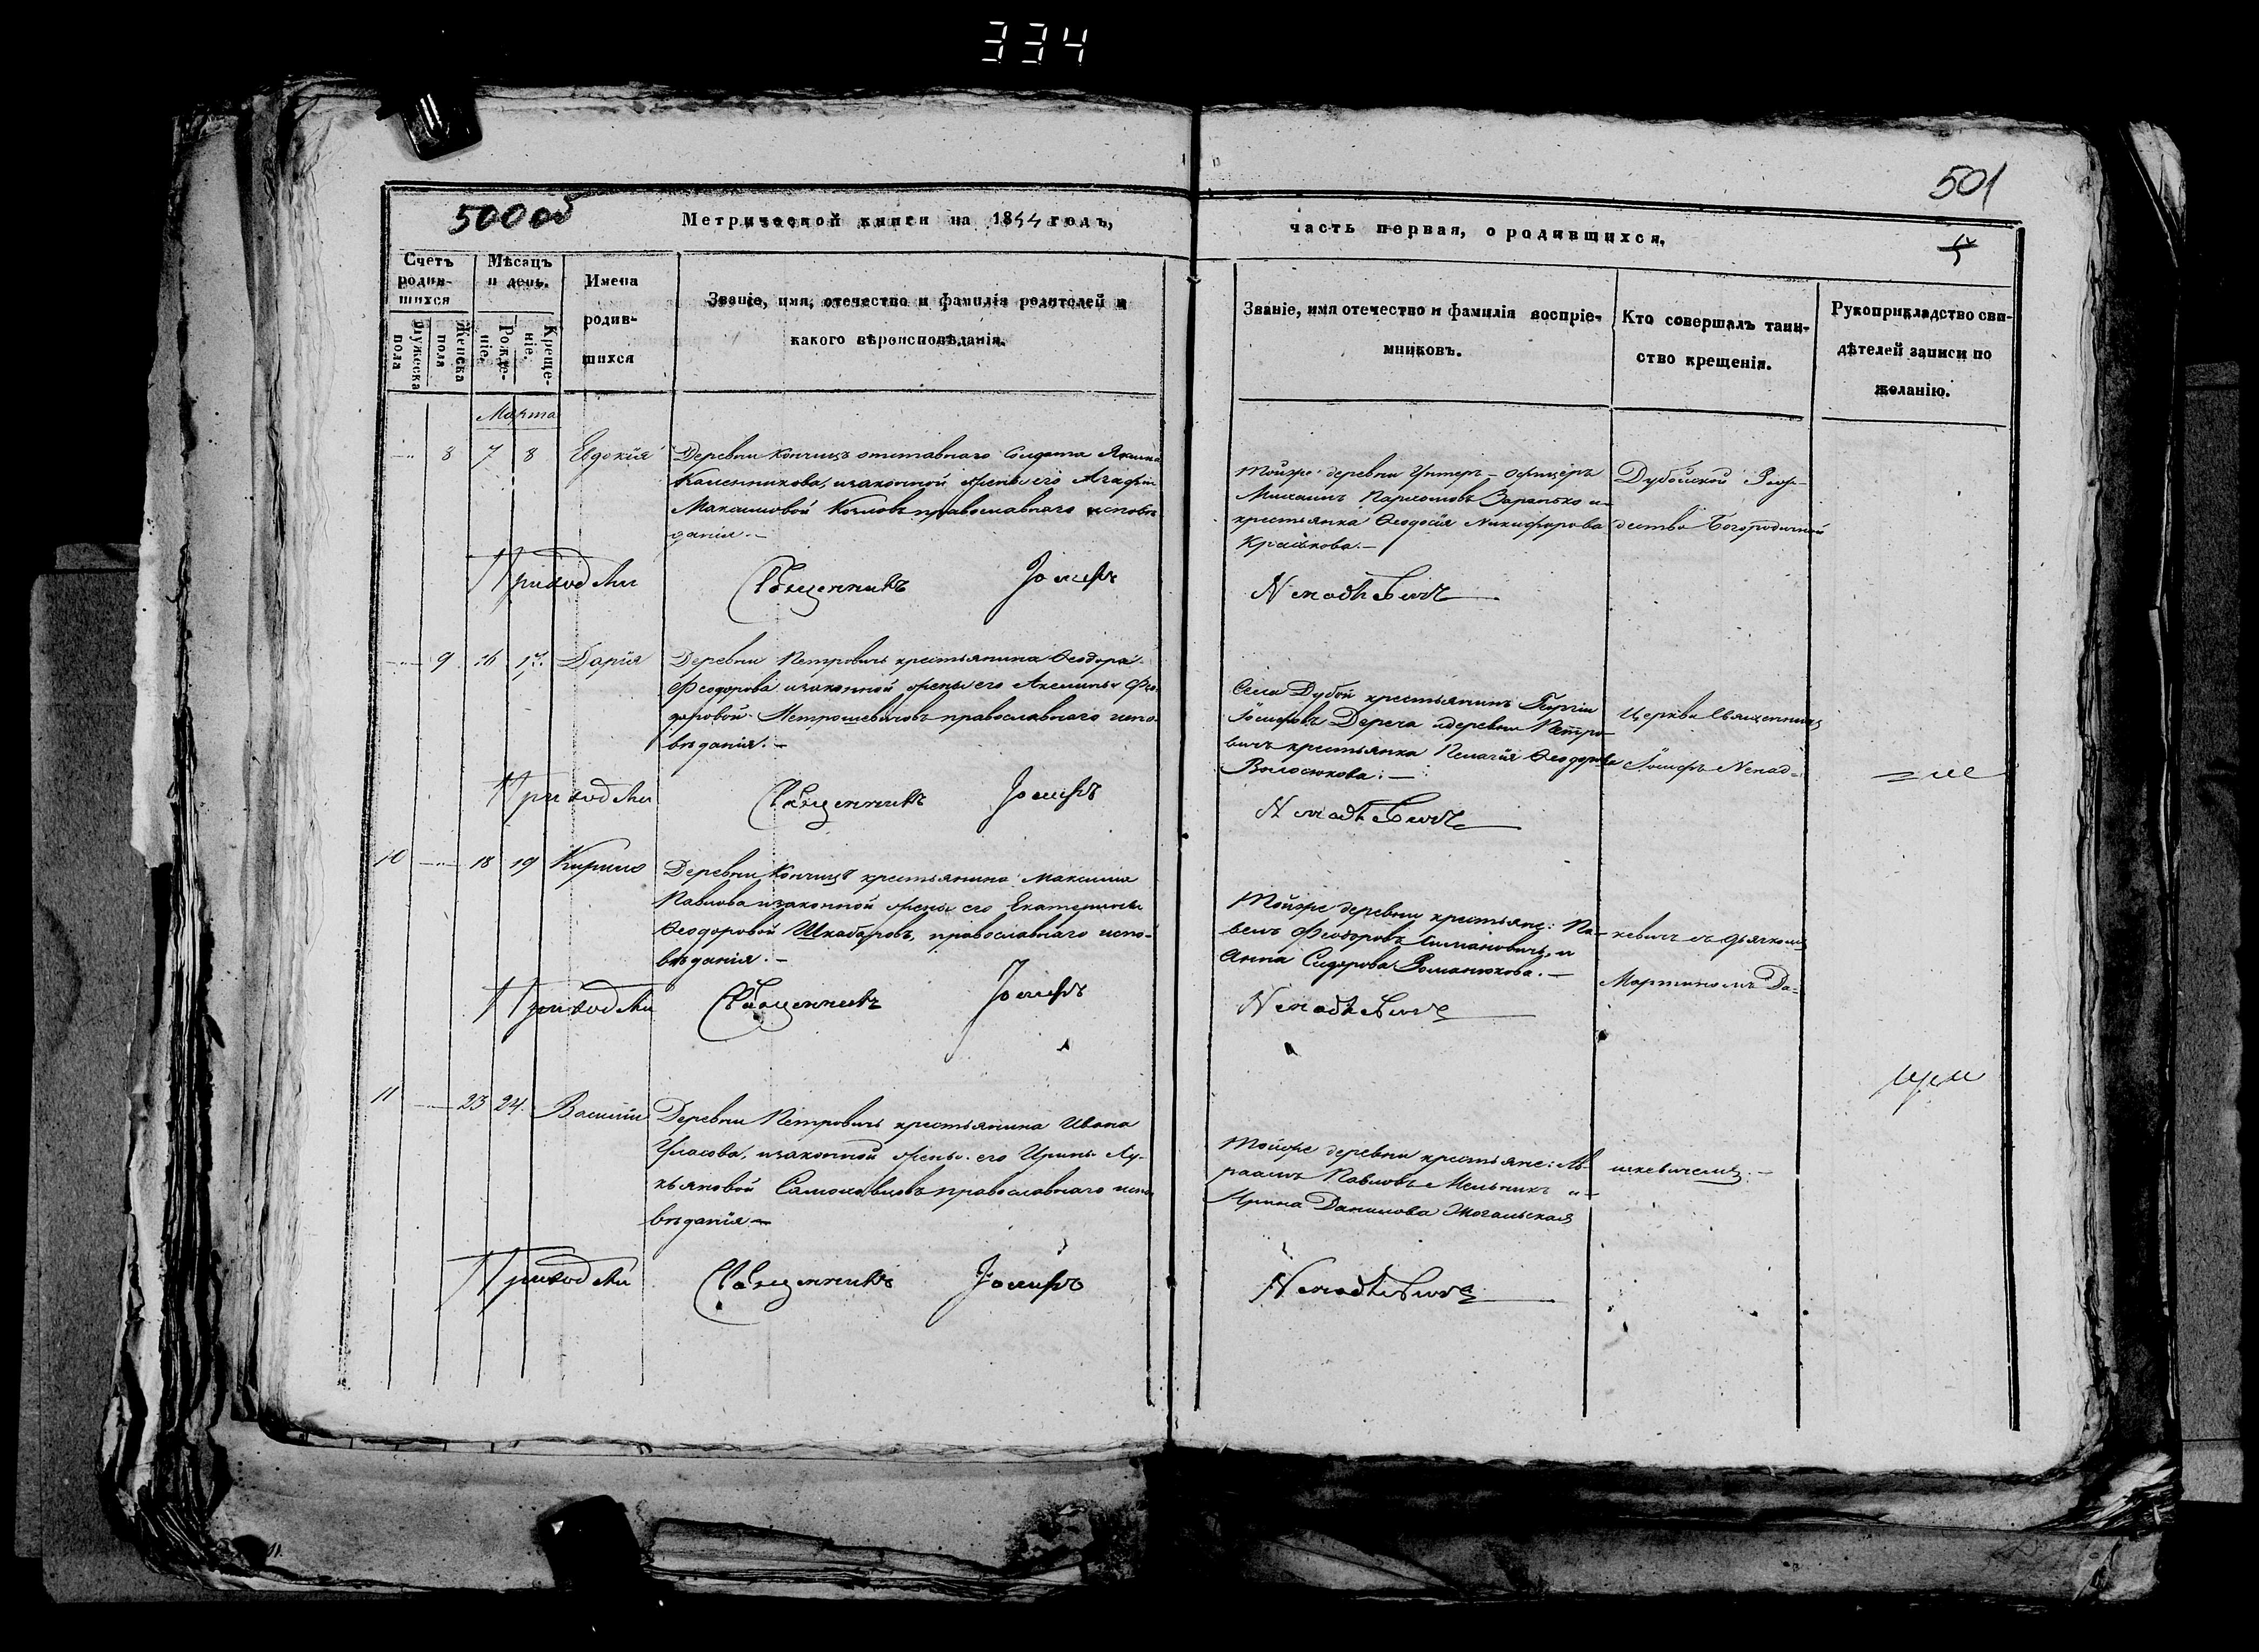 334
500 об
Метрической книги на 1844 годъ,
часть первая, о родившихся.
501
5
Счетъ родив-
шихся
Мужеска пола
Женска пола
Мѣсяцъ и день.
Рожде-
ніе.
Креще-
ніе.
Имена
родив-
шихся
Званіе, имя, отечество и фамилія родителей и
какого вѣроисповѣданія.
Званіе, имя отечество и фамилія воспріе-
мниковъ.
Кто совершалъ таин-
ство крещенія.
Рукоприкладство сви-
дѣтелей записи по
желанію.
Марта
8 7 8 Евдокія
Деревни Кончицъ отставнаго Солдата Якима
Каменникова, изаконной жены его Агафіи
Максимовой Козловъ православнаго исповѣ
данія.—
Тойже деревни Унтеръ-Офицеръ
Михаилъ Пархомовъ Заранько и
крестьянка Ѳеодосія Никифорова
Крайкова.—
Дубойской Рож-
дества Богородичной
Приходскій Священникъ Іосифъ Ненадкевичъ
9 16 17. Дарія
Деревни Петровичъ крестьянина Ѳеодора
Феодорова изаконной жены его Акелины Фео-
доровой Петрошевичовъ православнаго испо-
вѣданія.—
Села Дубой крестьянинъ Георгій
Іосифовъ Дереча идеревни Петро-
вичъ крестьянка Пелагія Ѳеодорова
Волосюкова.—
Церкви Священникъ
Іосифъ Ненад-
Приходскій Священникъ Іосифъ Ненадкевичъ
10 18 19 Кирило
Деревни Кончицъ крестьянина Максима
Павлова изаконной жены его Екатерины
Ѳеодоровой Шкабаровъ, православнаго испо-
вѣданія.—
Тойже деревни крестьяне: Па-
велъ Феодоровъ Симановичъ, и
Анна Сидорова Романюкова.—
кевичъ съ дьячкомъ
Мартиномъ Да-
Приходскій Священникъ Іосифъ Ненадкевичъ
11 23 24. Василій
Деревни Петровичъ крестьянина Ивана
Уласова, изаконной жены его Ирины Лу-
кьяновой Самоховцовъ православнаго испо
вѣданія—
Тойже деревни крестьяне: Ав-
раамъ Павловъ Мельникъ и
Ирина Данилова Могальская
шкевичемъ.—
Приходскій Священникъ Іосифъ Ненадкевичъ